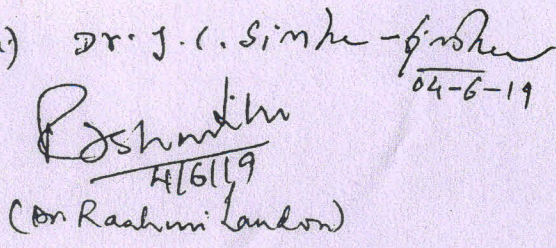 ) Dr. J. C. Sinha -
04-6-19
4/6/19
(Dr Raahmi Landon)